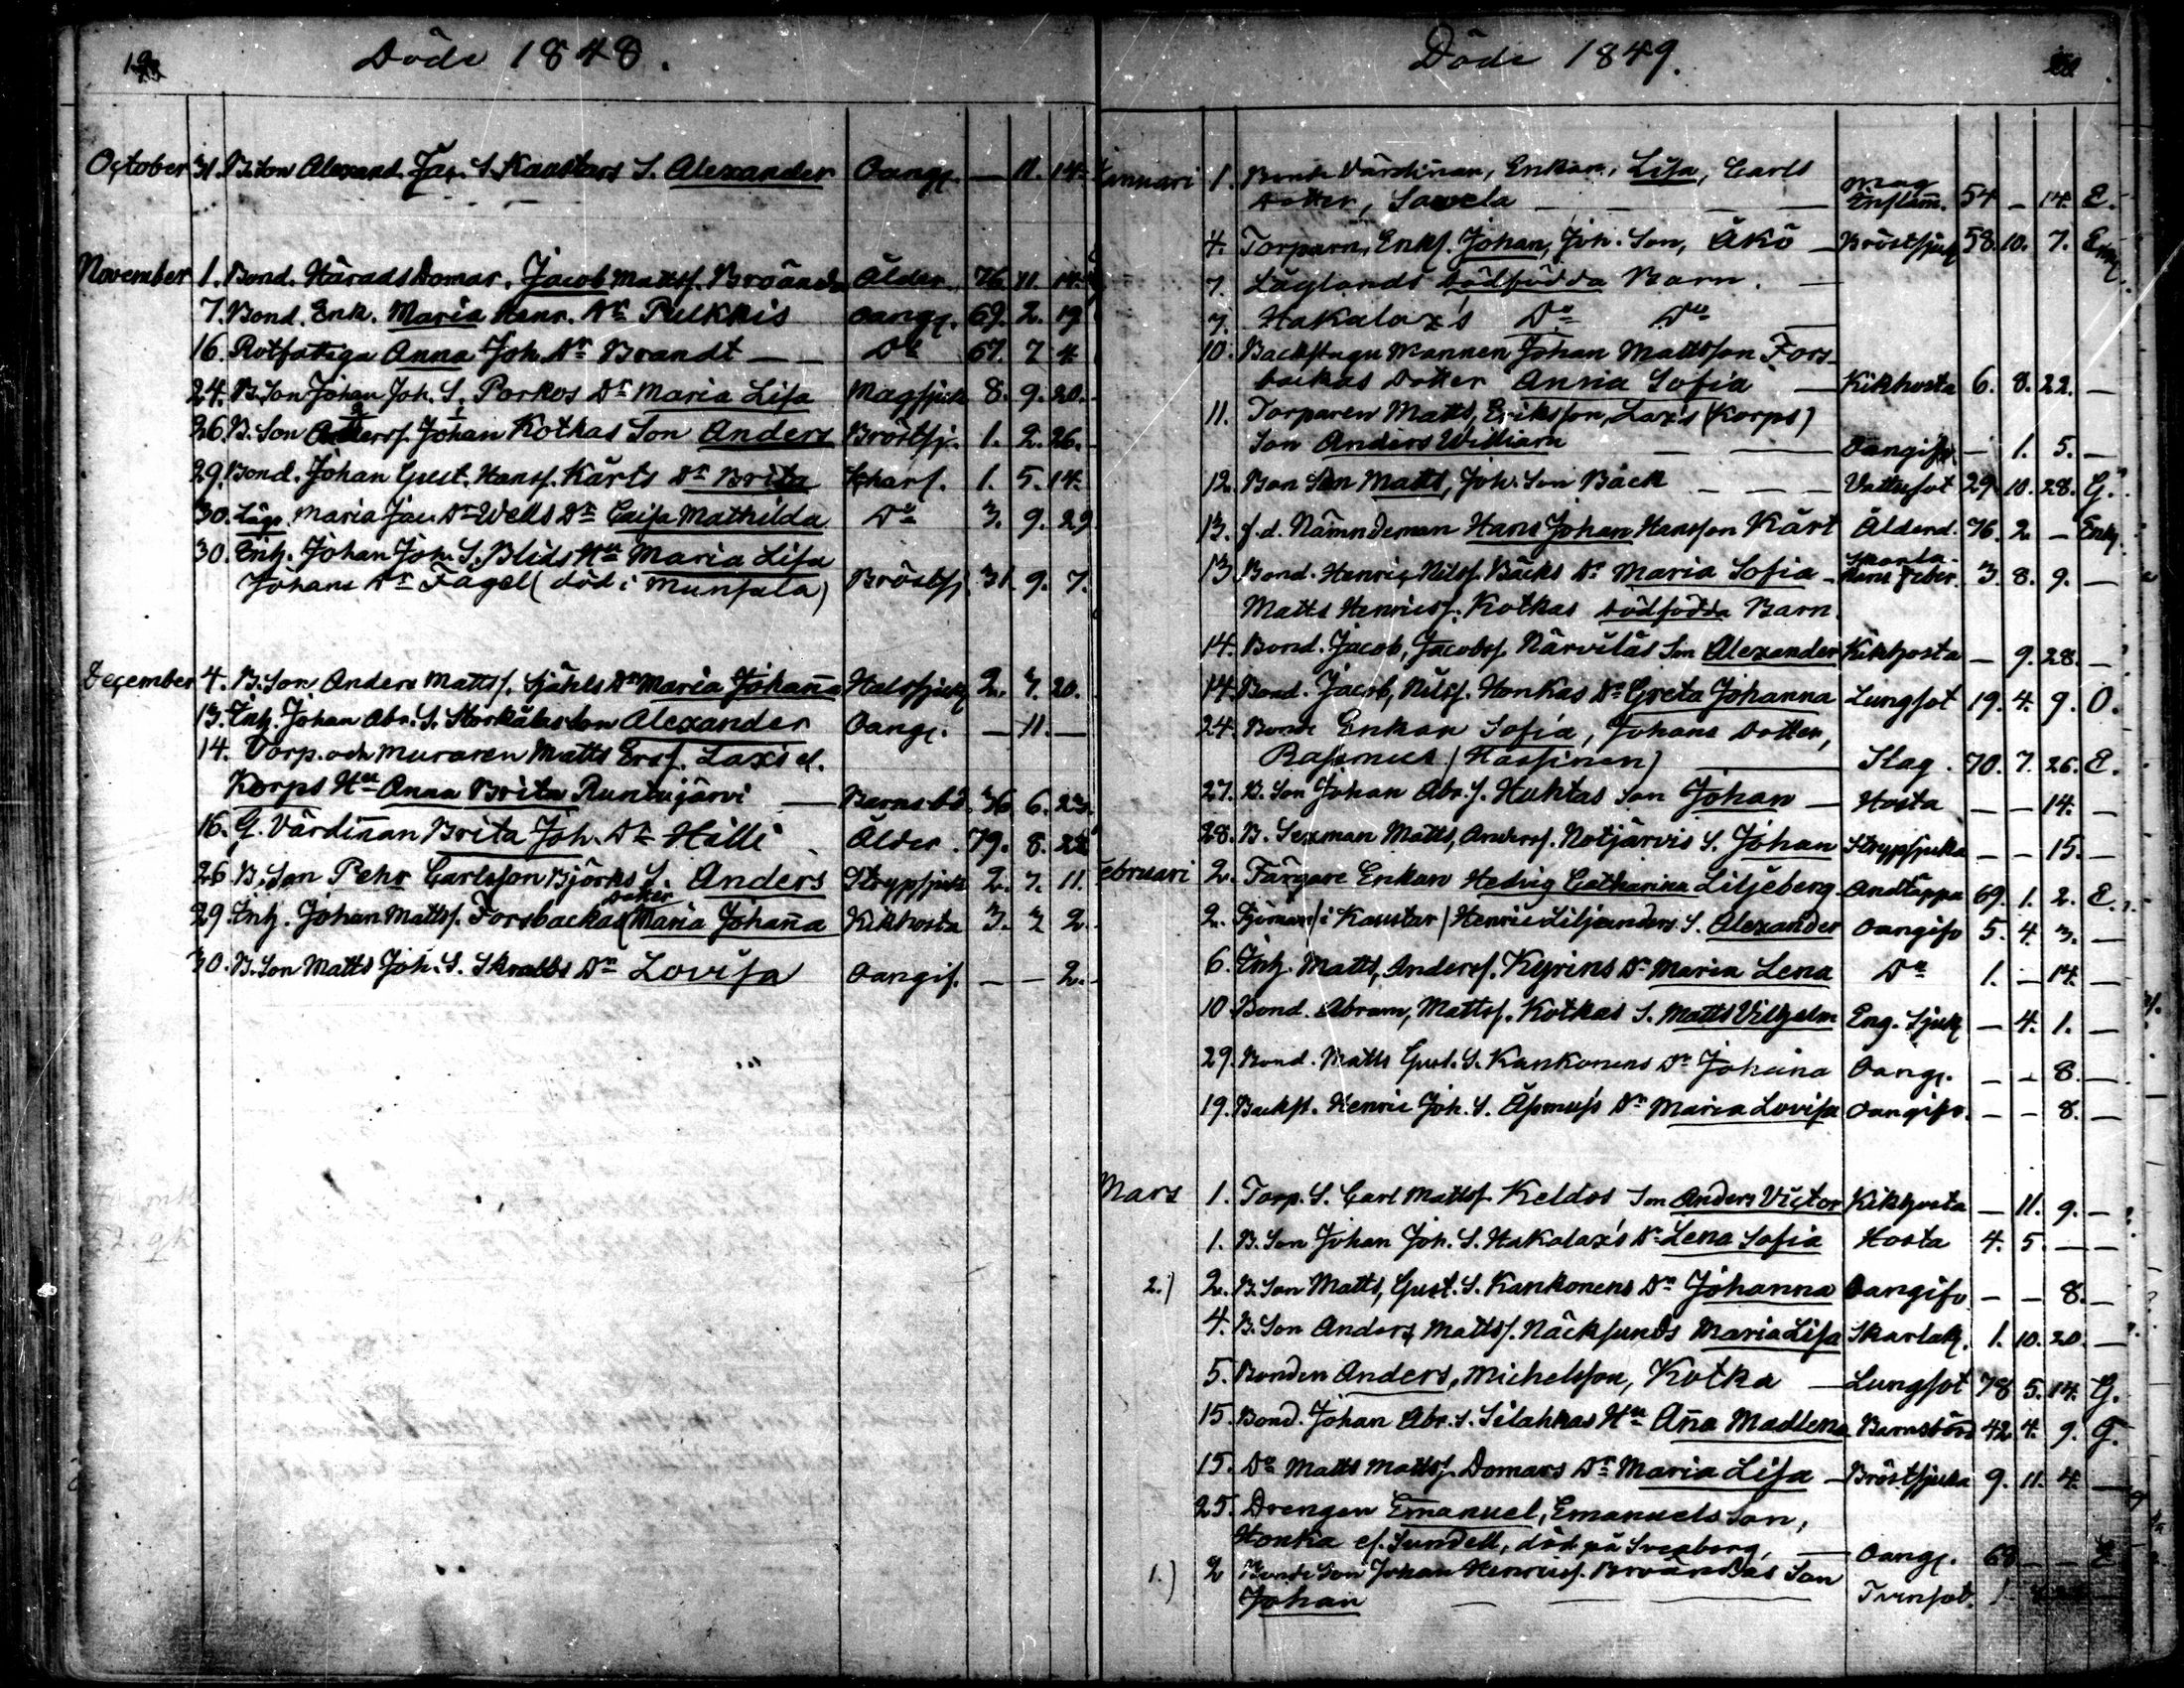 19
Döde 1848.
October 31. B. Son Alexand. Jac. S. Kaustars S. Alexander Oang. — 11. 14.
November 1. Bond. Härads Domar. Jacob Mattsf. Broända Ålder. 76. 11. 14.
7. Bond. Enk. Maria Henr. Dr Pulkkis Oang. 69. 2. 19
16. Rotfattiga Anna Joh. Dr Brandt — Do 67. 7 4.
24. B. Son Johan Joh. S. Porkos Dr Maria Lisa Magsjuk 8. 9. 20.
26. B. Son Andersf. Johan Kotkas Son Anders Bröstsj. 1. 2. 26.
29. Bond. Johan Gust. Hansf. Kårts Dr Brita Skharl. 1. 5. 14.
30. Lägs. Maria Jac. Dr Wells Dr Caisa Mathilda Do 3. 9. 29
30. Inh. Johan Joh. S. Blids Hu Maria Lisa
Johans Dr Fågel (död i Munsala) Bröstsj. 31. 9. 7.
December 4. B. Son Anders Mattsf. Sjåhls Dr Maria Johanna Halssjuk 2. 7. 20.
13. Inh. Johan Abr. S. Storkåhls Son Alexander Oang. — 11. —
14. Torp. och Muraren Matts Ersf. Laxis el.
Korps Hu Anna Brita Runtujärvi — Barnsb. 36. 6. 23.
16. G. Värdinnan Brita Joh. Dr Hilli Ålder. 79. 8. 22
26. B. Son Pehr Carlsson Björks S. Anders Strypsjuk 2. 7. 11.
29 Inh. Johan Mattsf. Forsbackas doter Maria Johanna Kikhosta 3. 3 2
30. B. Son Matts Joh. S. Skrabbs Dr Lovisa Oangif. — — 2.
Döde 1849.
Januari 1. Bonde Värdinnan, Enkan, Lisa, Carls
Dotter, Sawela — — — Mag Enflam. 54 — 14. E.
4. Torparn, Enkl. Johan, Joh. Son, Åkö — Bröstsjuk 58. 10. 7. Enkl.
7. Läglands dödfödda Barn. —
7. Hakalax's Do Do —
10. Backstugu Mannen Johan Mattsson Fors-
backas Dotter Anna Sofia — Kikhosta 6. 8. 22. —
11. Torparen Matts, Eriksson, Lax's (Korps)
Son Anders William — — Oangifv. — 1. 5. —
12. Bon Son Matts, Joh. Son Bäck — — — Vattusot 29 10. 28. G.
13. f.d. Nämndeman Hans Johan Hansson Kårt Ålderd. 76. 2. — Enkl.
13. Bond. Henric Nilsf. Bäcks Dr Maria Sofia — Skarla- kans feber. 3 8. 9. —
Matts Henricsf. Kotkas dödfödda Barn.
14. Bond. Jacob, Jacobsf. Närviläs Son Alexander Kikhosta — 9. 28. —
14. Bond. Jacob, Nilsf. Honkas Dr Greta Johanna Lungsot 19. 4. 9. O.
24. Bonde Enkan Sofia, Johans Dotter,
Rasmus (Hassinen) — Slag. 70. 7. 26. E.
27. B. Son Johan Abr. S. Huhtas Son Johan — Hosta — — 14. —
28. B. Sexman Matts, Andersf. Notjärvis S. Johan Strypsjuka — — 15. —
Februari 2. Färgare Enkan Hedvig Catharina Liljeberg Andtäppa 69. 1. 2. E.
2. Sjöman (i Kaustar) Henric Liljanders S. Alexander Oangifv 5. 4. 3. —
6. Inh. Matts, Andersf. Kyrins Dr Maria Lena Do 1. — 14. —
10 Bond. Abram, Mattsf. Kotkas S. Matts Vilhelm Eng. Sjuk — 4. 1. —
29. Bond. Matts Gust. S. Kankonens Dr Johanna Oang. — — 8. —
19. Backst. Henric Joh. S. Åsmus's Dr Maria Lovisa Oangifv. — — 8. —
Mars 1. Torp. S. Carl Mattsf. Keldos Son Anders Victor Kikhosta — 11. 9. —
1. B. Son Johan Joh. S. Hakalax's Dr Lena Sofia Hosta 4. 5. — —
2.) 2. B. Son Matts, Gust. S. Kankonens Dr Johanna Oangifv — — 8. —
4. B. Son Anders Mattsf. Näcksunds Maria Lisa Skarlak. 1. 10. 20. —
5. Bonden Anders, Michelsson, Kotka — Lungsot 78 5. 14. G.
15. Bond. Johan Abr. S. Silahkas Hu Anna Madlena Barnsbörd 42 4. 9. G.
15. Do Matts Mattsf. Domars Dr Maria Lisa — Bröstsjuka 9. 11. 4. —
25. Drengen Emanuel, Emanuels Son,
Honka el. Sundell, död på Sveaborg, — Oang. 68 — —
1.) 2 Bonde Son Johan Henricsf. Broändas Son
Johan — — — Tvinsot. 1.